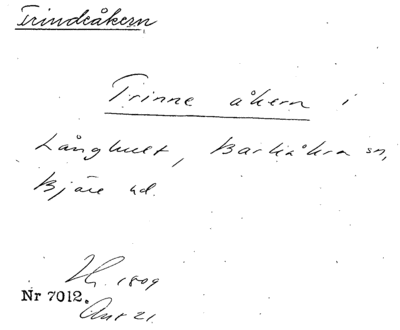 Trindeåkern
Trinne åkern i
Långhult, Barkåkra sn,
Bjäre hd.
1809
Nr 7012.
21.